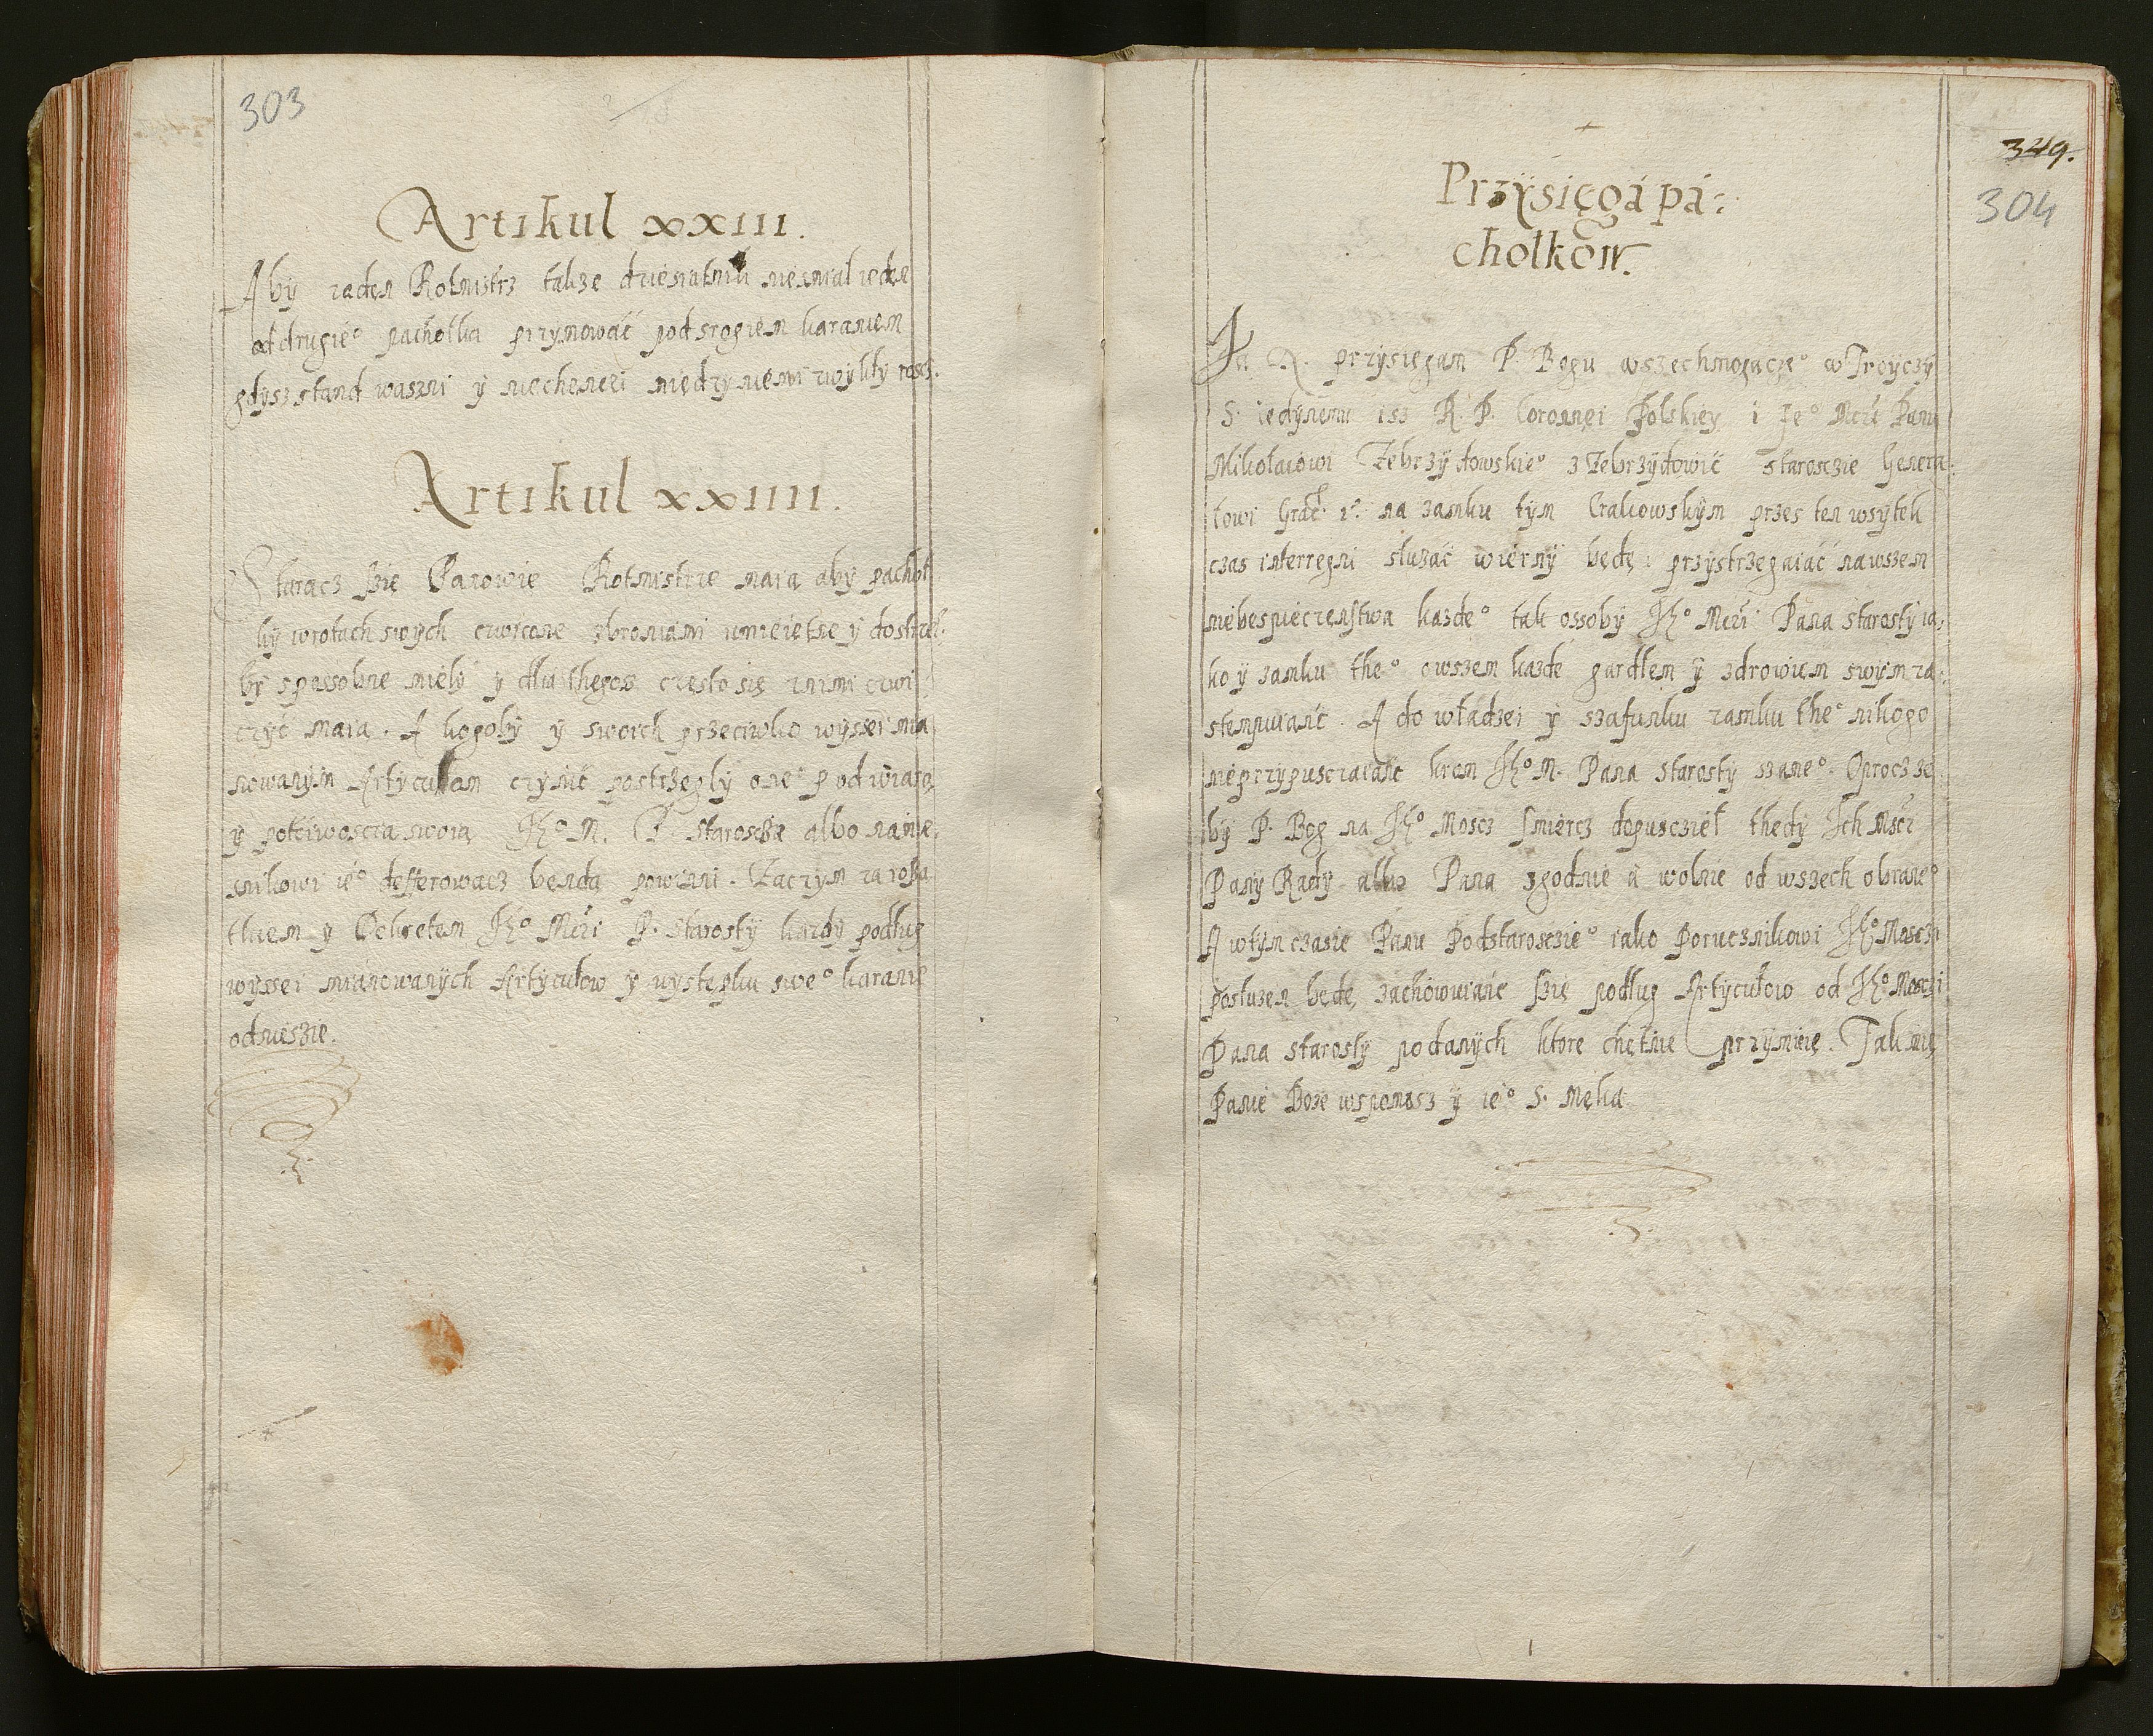 303
Artikul xxiii.
Abÿ zaden Rotmistrz takze dziesiatnik niesmial ieden
od drugie° pachołka przymowáć pod srogiem karaniem
gdÿsz stand wasni ÿ niechenci międzÿ niemi zwÿkłÿ rosć.
Artikul xxiiii.
Staracz szie Panowie Rotmistrze maią abÿ pachoł
kÿ w rotach swÿch cwiczone zbroniámi umieietne ÿ do strzel
bÿ spossobne mieli ÿ dla thegosz często się znimi cwi
czÿć maią. A kogobÿ ÿ swoich przeciwko wÿssei mia
nowanÿm Artÿcułam czÿnić postrzeglÿ one° pod wiarą
ÿ potciwoscia swoią Jh° M. P. Starosczie albo namie,
snikowi ie° defferowacz bendą powinni. Zaczÿm za roska
tkiem ÿ Dekretem Jh° Mczi P. Starostÿ kazdÿ podług
wÿssei miánowanÿch Artÿcułow ÿ wÿstepku swe° karanie
odniesżie.
349.
304
Przÿsięgá pá:
chołków.
Ja N. przÿsiegam P. Bogu wszechmogącze° w Troÿczÿ
S. iedÿnemu isz R. P. Coronnei Polskieÿ i Je° Mczi Panu
Mikołaiowi Zebrzÿdowskie° z Zebrzÿdowić Starosczie Genera:
łowi Grac. na zamku tÿm Crakowskÿm przes ten wsÿtek
czas interregni słuzáć wiernÿ będę: przÿstrzegaiáć nawszem
niebespieczenstwa kazde° tak ossobÿ Jh° Mczi Pana Starostÿ ia,
ko ÿ zamku the° owszem kazde gardłem ÿ zdrowiem swÿm za:
stempuiánc. A do władzei ÿ szafunku zamku the° nikogo
nieprzÿpuscziaiánc krom Jh° M. Pana Starostÿ same°. Oprocz ze
bÿ P. Bog na Jh° Moscz smiercz dopusczieł thedÿ Ich Mści
Panÿ Radÿ albo Pana zgodnie á wolnie od wszech obrane°
A wtÿm czasie Panu Podstarosczie° iako Porucznikowi Jh° Mosczi
posłuzen będę, zachowuiánc szię podług Artÿcułow od Jh° Mosczi
Pana Starostÿ podanÿch ktore chętnie przÿmię. Tak mię
Panie Boze wspomosz ÿ ie° S. Męka.